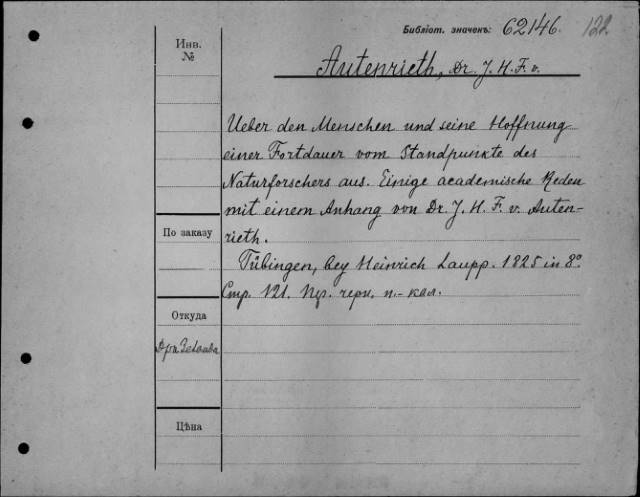 Библіот. значекъ: 62146. 122
Инв. №
Autenrieth, Dr. J. H. F. v.
Ueber den Menschen und seine Hoffnung
einer Fortdauer vom Standpunkte des
Naturforschers aus. Einige academische Reden
mit einem Anhang von Dr. J. H. F. v. Auten-
rieth.
По заказу
Tübingen, bey Heinrich Laupp. 1825 in 8º.
Стр. 121. черн. п.-кол.
Откуда
Цѣна